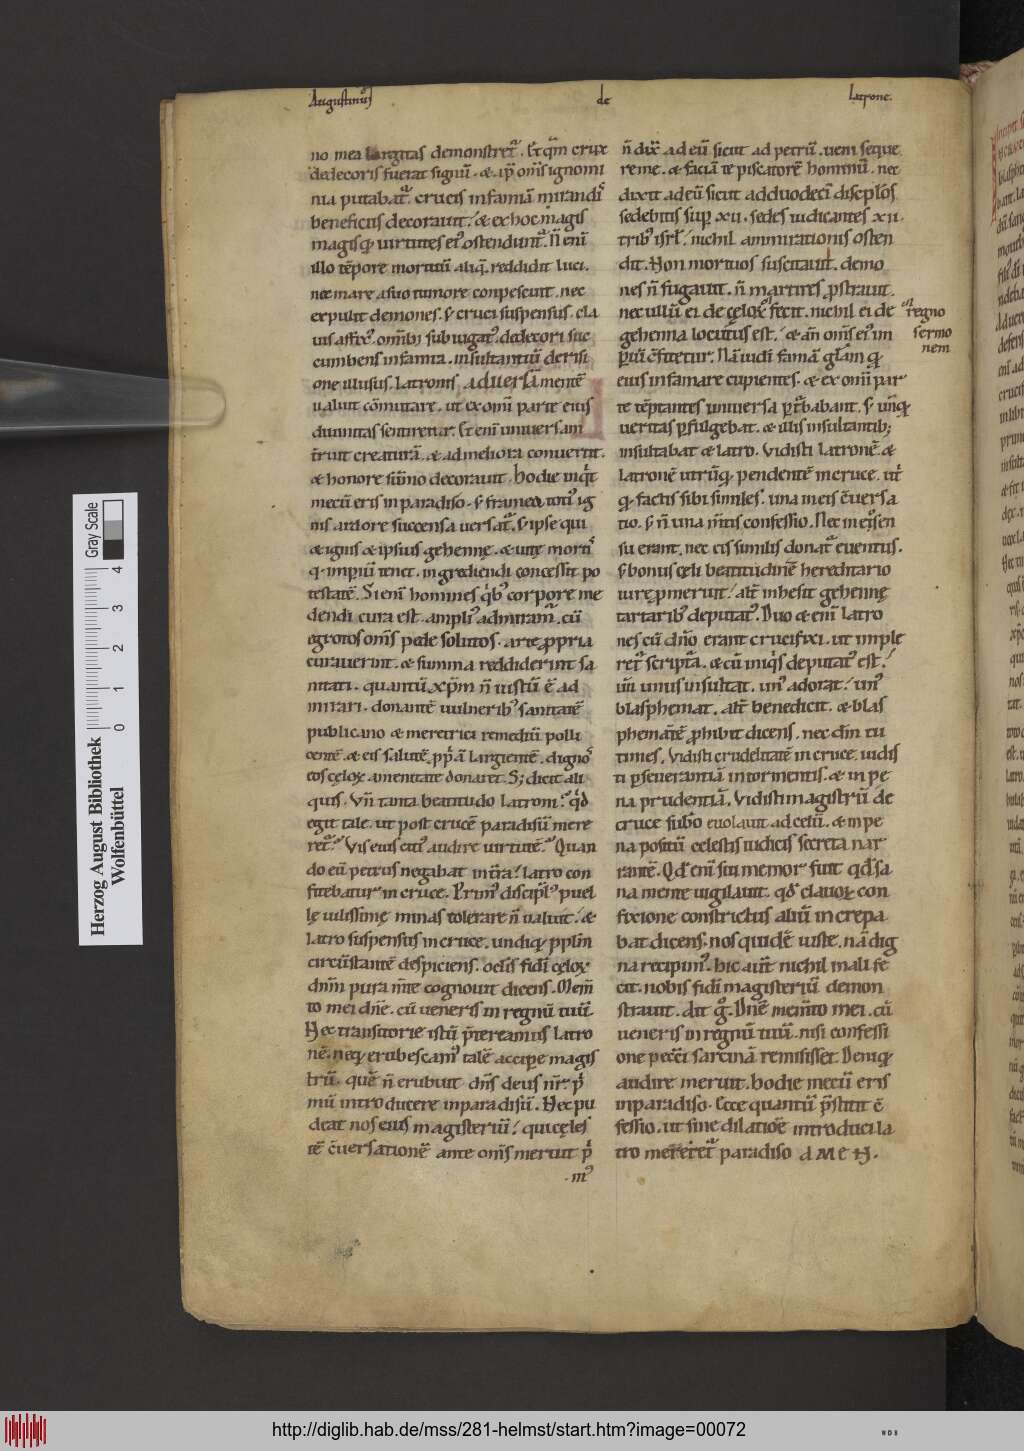 Augustinus de latrone.
no mea largitas demonstret᷑. Et qm̄ crux
dedecoris fuerat signū. & ip̄ om̄s ignomi
nia putabat᷑. crucis infamiā mirandiˢ
beneficiis decorauit. & ex hoc magis
magisq; uirtutes ei᷒ ostendunt᷑. Ñ enī
illo tēpore mortuū aliq̄. reddidit luci.
nec mare a suo tumore conpescuit. nec
expulit demones. s; cruci suspensus. cla
uis affix᷒. om̄ib; subiugat᷒. dedecori suc
cumbens infamia. insultantiū derisi
one illusus. latronis aduersā mentē
ualuit cōmutare. ut ex om̄i parte eius
diuinitas sentiretur. Et enī uniuersam
tr̄uit creaturā. & ad meliora conuertit.
& honore sūmo decorauit. hodie inqͥt
mecū eris in paradiso. s; framea toti᷒ ig
nis ardore succensa uersat᷑. s; ipse qui
& ignis & ipsius gehennę. & uitę mortiˢ
q; impiū tenet. ingrediendi concessit po
testatē. Si enī homines qͥb᷒ corpore me
dendi cura est. ampli᷒ admiram᷑. cū
egrotos om̄s pede solutos. arte propria
curauerint. & summa reddiderint sa
nitati. quantū xp̄m ñ iustū ē ad
mirari. donantē uulnerib᷒ sanitatē
publicano & meretrici remediū polli
centē. & eis salutē. ppͥa largientē. dignoˢ
eos cęlorꝝ amenitate donaret. S; dicit ali
quis. Vn̄ tanta beatitudo latroni? qͥd
egit tale. ut post crucē paradisū mere
ret᷑? Vis eius cit᷒ audire uirtutē? Quan
do eū petrus negabat in tr̄a. latro con
fitebatur in cruce. Prim᷒ discipl᷒ puel
lę uilissimę minas tolerare ñ ualuit. &
latro suspensus in cruce. undiq; pplm̄
circūstantē despiciens. oclis fidī cęlorꝝ
dn̄m pura m̄te cognouit dicens. Mem̄
to mei dn̄e. cū ueneris in regnū tuū.
Hęc transitorie istū p̄tereamus latro
nē. neq; erubescam᷒ talē accipe magis
trū. quē ñ erubuit dn̄s deus nr̄ pͥ
mū introducere in paradisū. Hec pu
deat nos eius magisteriū. qui cęles
tē c̄uersationē ante om̄s meruit pͥ
·m᷒
ñ dix̄ ad eū sicut ad petrū. ueni seque
re me. & faciā te piscatorē hominū. nec
dixit ad eū sicut ad duodeci discipl̄os
sedebitis sup xii. sedes iudicantes xii.
trib᷒ isrl̄. nichil ammirationis osten
dit. Non mortuos suscitauit. demo
nes ñ fugauit. ñ martires prostrauit.
nec ullū ei de cęlorꝝ fecit. nichil ei de regno
gehenna locutus est. & an̄ om̄s ei᷒ im sermo
piū c̄fitetur. Nā iudi famā glām q; nem
eius infamare cupientes. & ex om̄i par
te tēptantes uniuersa ptͬbabant. s; un̄q;
ueritas pfulgebat. & illis insultantib;
insultabat & latro. Vidisti latronē. &
latronē utrūq; pendentē in cruce. utͥ
q; factis sibi similes. una in eis c̄uersa
tio. s; ñ una m̄tis confessio. Nec in eosen
su erant. nec eis similis donat᷑ euentus.
s; bonus cęli beatitudinē hereditario
iure promeruit. alt̄ inhesit gehennę
tartarib᷒ deputat᷒. Duo & enī latro
nes cū dn̄o erant crucifixi. ut imple
ret᷑ scriptͣa. & cū iniqͥs deputat᷒ est.
un̄ unus insultat. un᷒ adorat. un᷒
blasphemat. alt̄ benedicit. & blas
phemātē prohibit dicens. nec dm̄ tu
times. Vidisti crudelitatē in cruce. uidis
ti pseuerantiā in tormentis. & in pe
na prudentiā. Vidisti magistrū de
cruce subo euolauit ad celū. & in pe
na positū celestis iudicis secreta nar
rantē. Qd̄ enī sui memor fuit qd̄ sa
na mente uigilauit. qd̄ clauorꝝ con
fixione constrictus aliū increpa
bat dicens. nos quidē iuste. nā dig
na recipim᷒. hic aut̄ nichil mali fe
cit. nobis fidī magisteriū demon
strauit. dit g°. Dn̄e memto mei. cū
ueneris in regnū tuū. nisi confessi
one pecc̄i sarcinā remisisset. Deniq;
audire meruit. hodie mecū eris
in paradiso. Ecce quantū p̄stitit c̄
fessio. ut sine dilatiōe introduci la
tro mereret᷑ paradiso AMEN.
Herzog August Bibliothek
Wolfenbüttel
Gray Scale
0 1 2 3 4
http://diglib.hab.de/mss/281-helmst/start.htm?image=00072